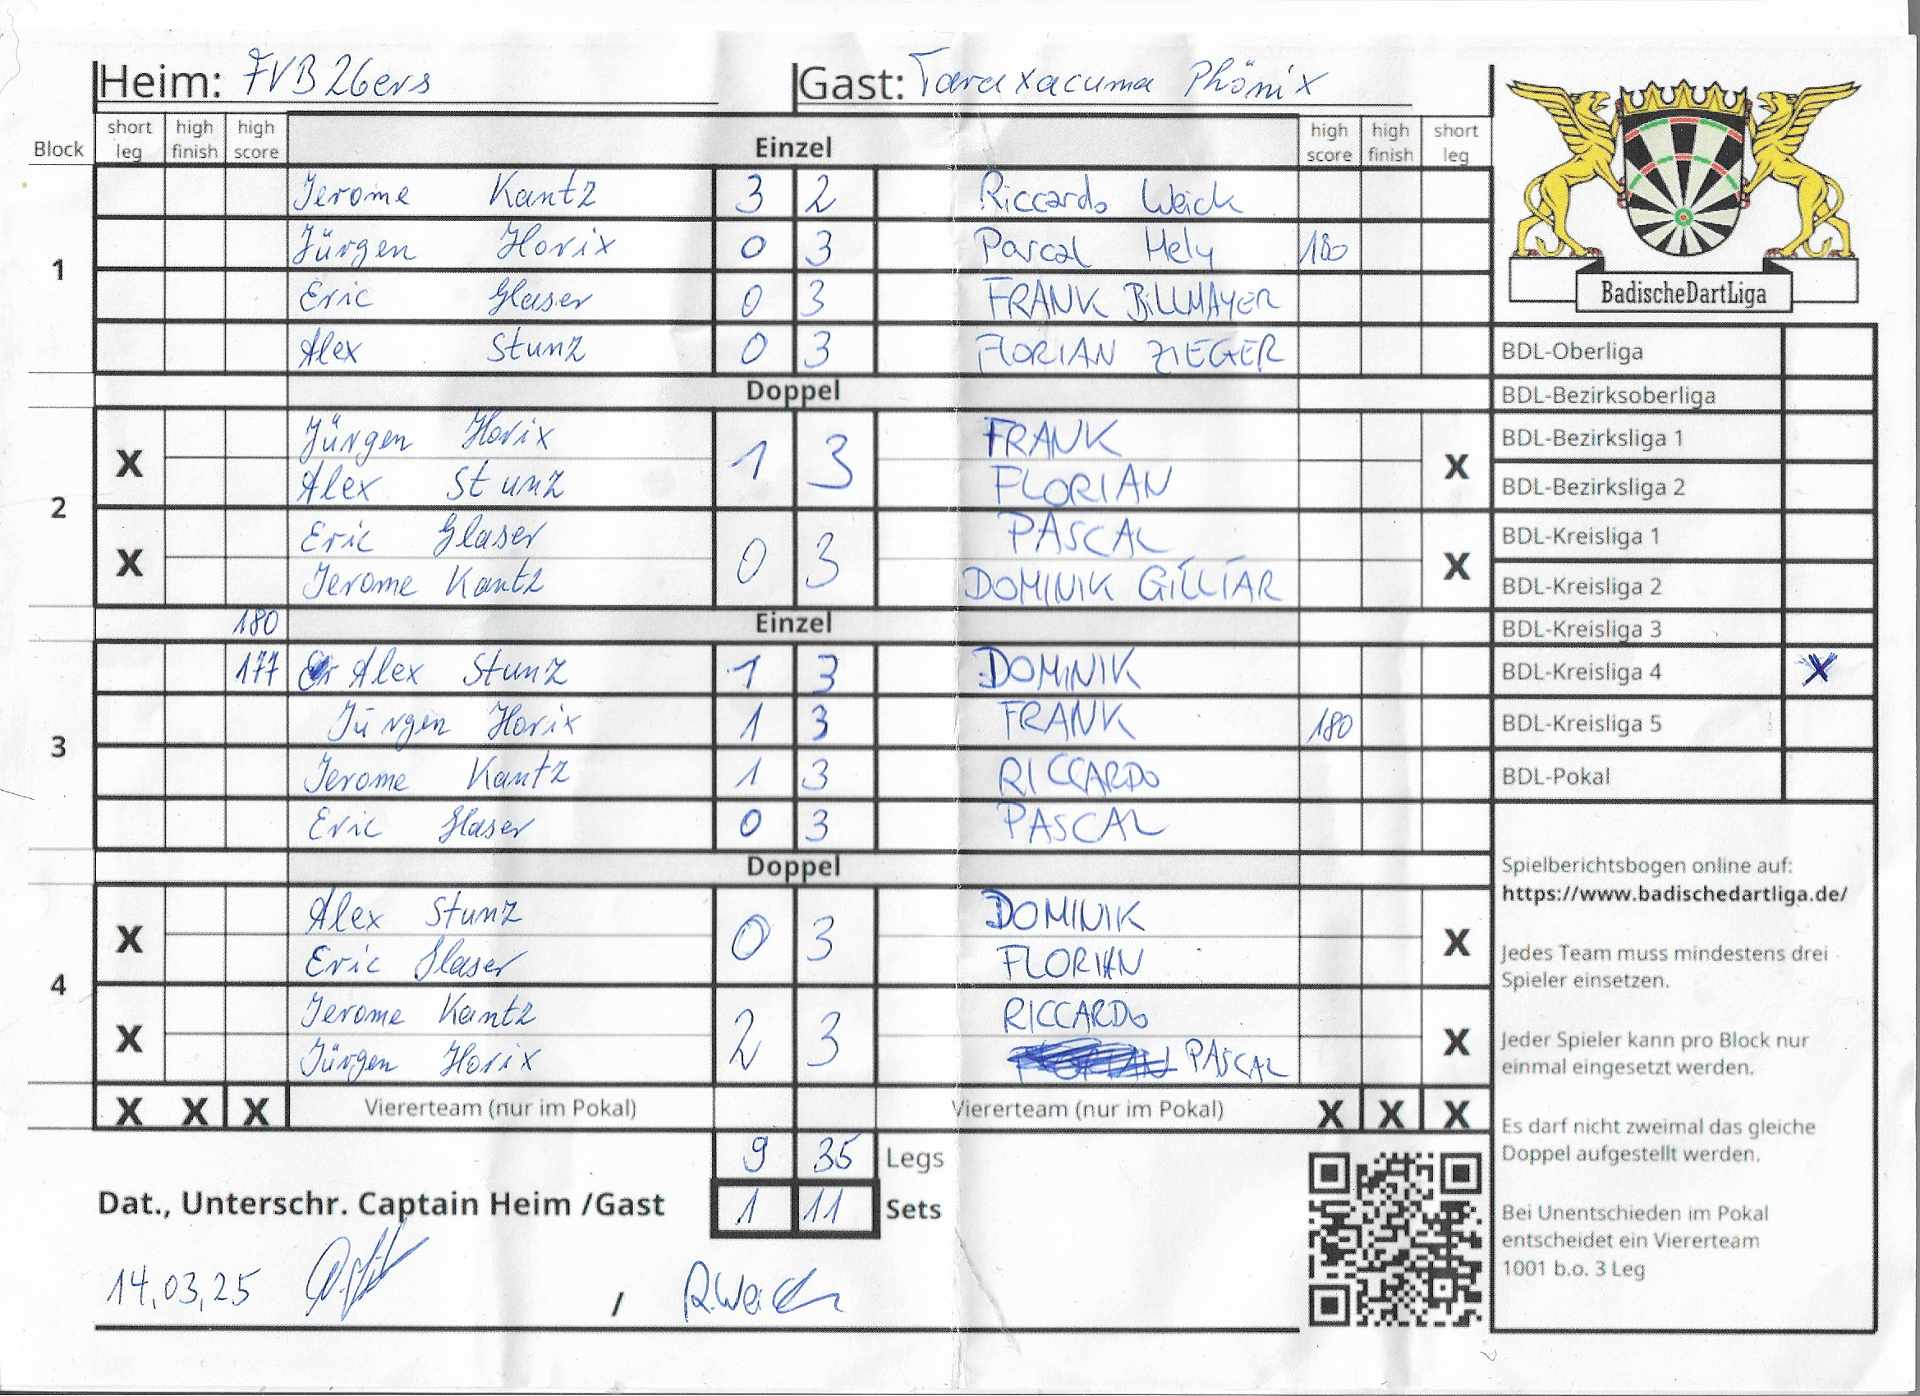 Heim: FVB 26ers Gast: Taraxacuma Phönix
Block short leg high finish high score Einzel high score high finish short leg
Jerome Kantz 3 2 Riccardo Weick
1 Jürgen Horix 0 3 Pascal Hely 180
Eric Glaser 0 3 FRANK BILLMAYER
Alex Stunz 0 3 FLORIAN ZIEGER
Doppel
2 X Jürgen Horix 1 3 FRANK X
Alex Stunz FLORIAN
X Eric Glaser 0 3 PASCAL X
Jerome Kantz DOMINIK GILLIAR
180 Einzel
3 177 Alex Stunz 1 3 DOMINIK
Jürgen Horix 1 3 FRANK 180
Jerome Kantz 1 3 RICCARDO
Eric Glaser 0 3 PASCAL
Doppel
4 X Alex Stunz 0 3 DOMINIK X
Eric Glaser FLORIAN
X Jerome Kantz 2 3 RICCARDO X
Jürgen Horix PASCAL
X X X Viererteam (nur im Pokal) Viererteam (nur im Pokal) X X X
9 35 Legs
Dat., Unterschr. Captain Heim /Gast 1 11 Sets
14.03.25 / R.Weick
BadischeDartLiga
BDL-Oberliga
BDL-Bezirksoberliga
BDL-Bezirksliga 1
BDL-Bezirksliga 2
BDL-Kreisliga 1
BDL-Kreisliga 2
BDL-Kreisliga 3
BDL-Kreisliga 4 X
BDL-Kreisliga 5
BDL-Pokal
Spielberichtsbogen online auf:
https://www.badischedartliga.de/
Jedes Team muss mindestens drei
Spieler einsetzen.
Jeder Spieler kann pro Block nur
einmal eingesetzt werden.
Es darf nicht zweimal das gleiche
Doppel aufgestellt werden.
Bei Unentschieden im Pokal
entscheidet ein Viererteam
1001 b.o. 3 Leg